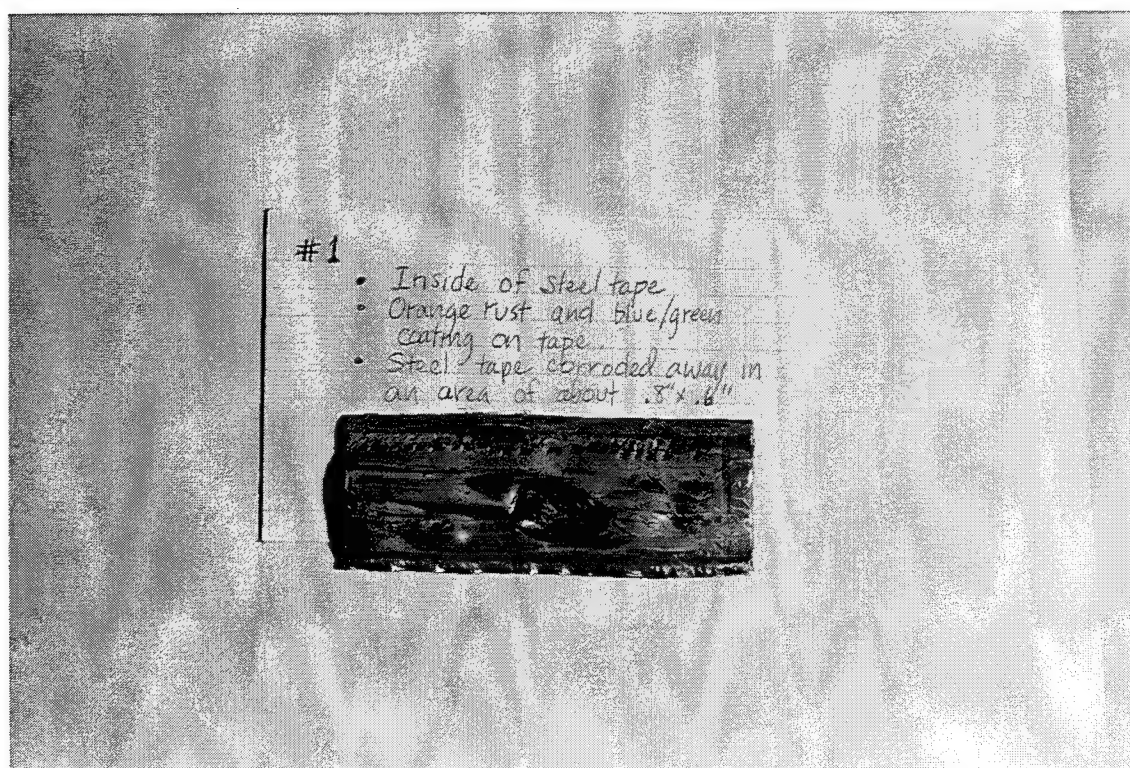 #1
• Inside of steel tape
• Orange rust and blue/green
coating on tape
• Steel tape corroded away in
an area of about .8" x .6"